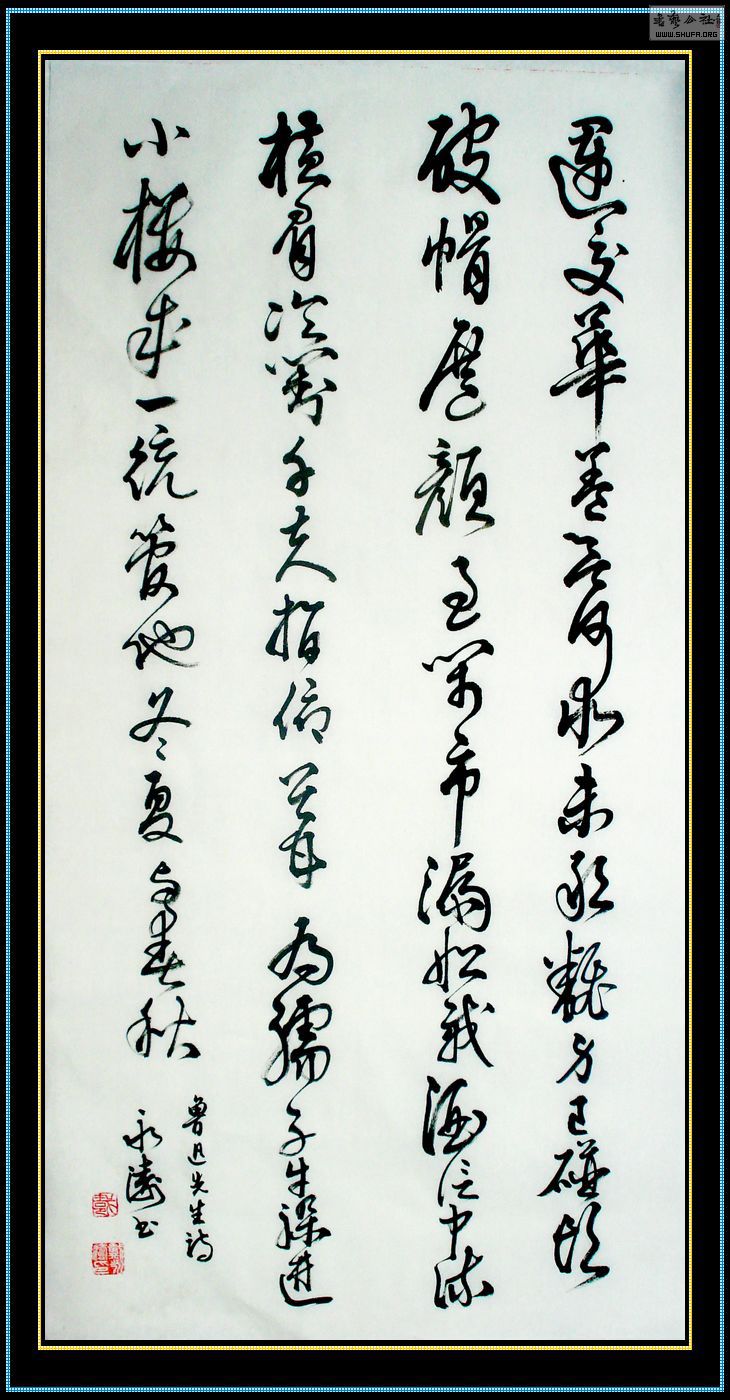 運交華盖欲何求未敢翻身已碰頭
破帽遮顏過鬧市漏船載酒泛中流
横眉冷對千夫指俯首甘為孺子牛躲進
小樓成一統管他冬夏與春秋
魯迅先生詩
永濤书
書藝公社
WWW.SHUFA.ORG